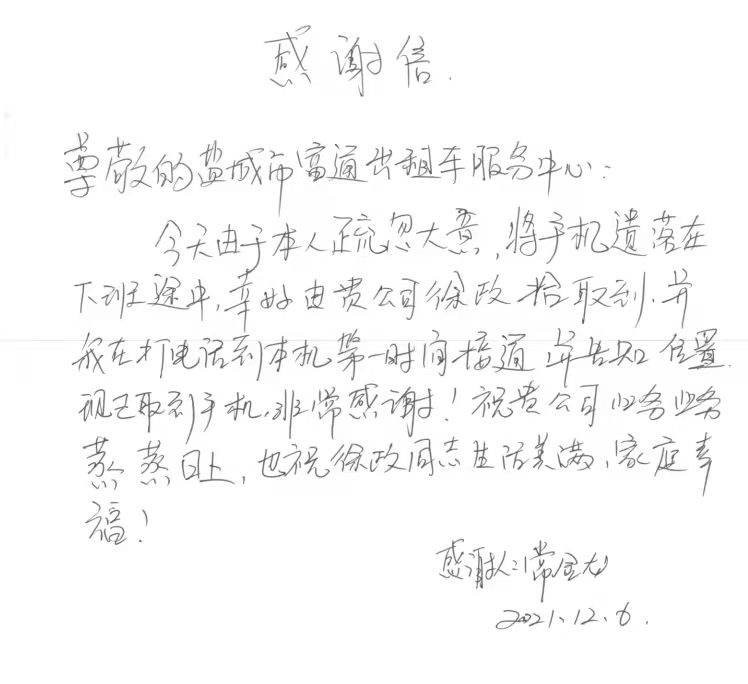 感谢信.
尊敬的盐城市富通出租车服务中心：
今天由于本人疏忽大意，将手机遗落在
下班途中，幸好由贵公司徐政拾取到.并
我在打电话到本机第一时间接通并告知位置.
现已取到手机.非常感谢！祝贵公司业务业务
蒸蒸日上，也祝徐政同志生活美满，家庭幸
福！
感谢人：常金
2021.12.6.